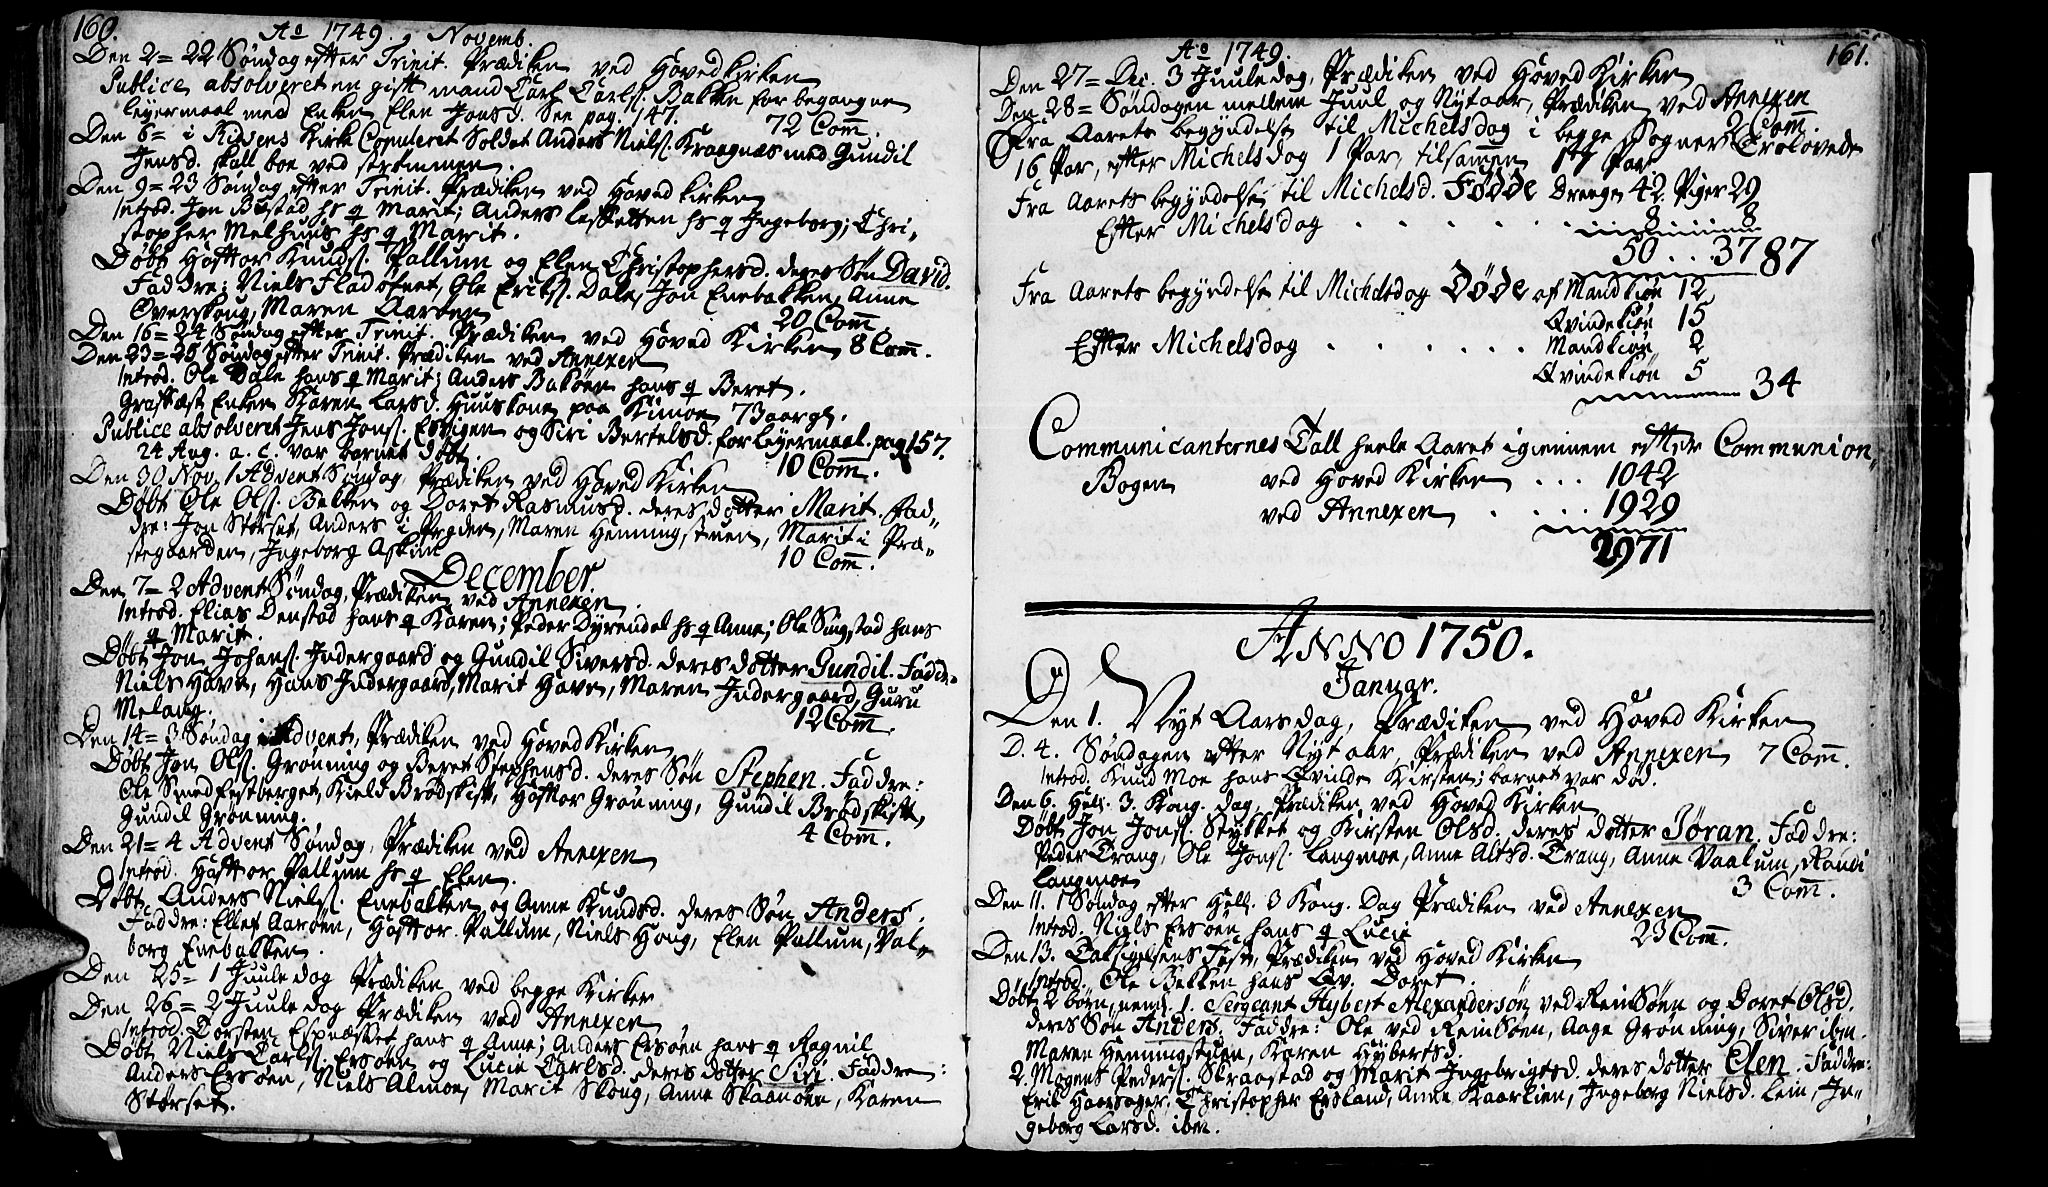 160. Aº 1749. Novemb.
Den 2= 22 Søndag efter Trinit. Prædiken ved Hovedkirken
Publice absolveret en gift mand Carl Carls. Bakken for begangne
leyermaal med Enken Elen Jonsd. See pag. 147. 72 Com̄.
Den 6= i Kirke Copuleret Soldat Anders Niels. Kraagnæs med Gundil
Jensd. skall boe ved strømmen.
Den 9= 23 Søndag efter Trinit. Prædiken ved Hovedkirken
Introd. Jon Bustad hs q Marit; Anders hs q Ingeborg; Chri-
stopher Melhuus hs q Marit.
Døbt Haftor Knuds. Pallum og Elen Christophersd. deres Søn David.
Faddre: Niels Fladøfnet, Ole Eriks. Dale, Jon Enebakken, Anne
Overskoug, Maren Aarøen 20 Com̄.
Den 16= 24 Søndag efter Trinit. Prædiken ved Hoved Kirken 8 Com̄.
Den 23= 25 Søndag efter Trinit. Prædiken ved Annexen
Introd. Ole Dale hans q Marit; Anders Bakøen hans q Beret.
Grafkæst Enken Karen Larsd. Huuskone paa Kimoe 73 aargl.
Publice absolveret Jens Jons. Espigen og Siri Bertelsd. for leyermaal. pag 157.
24 Aug. a. c. var barnet døbt. 10 Com̄.
Den 30 Nov. 1 Advent Søndag, Prædiken ved Hoved Kirken
Døbt Ole Ols. Bekken og Doret Rasmusd. deres dotter Marit. Fad-
dre: Jon Størset, Anders i Prøden, Maren Hemmingstuen, Marit i Præ-
stegaarden, Ingeborg Askim 10 Com̄.
December.
Den 7= 2 Advent Søndag, Prædiken ved Annexen
Introd. Elias Denstad hans q Karen; Peder Dyrendal hs q Anne; Ole Singstad hans
q Marit.
Døbt Jon Johans. Indergaard og Gundil Siversd. deres dotter Gundil. Faddre
Niels Haven, Hans Indergaard, Marit Haven, Maren Indergaard, Guru
Melaug. 12 Com̄.
Den 14= 3 Søndag i Advent, Prædiken ved Hoved Kirken
Døbt Jon Ols. Grønning og Beret Stephensd. deres Søn Stephen. Faddre:
Ole Smed Festberget, Kield Brødskift, Haftor Grønning, Gundil Brødskift,
Gundil Grønning. 4 Com̄.
Den 21= 4 Advent Søndag, Prædiken ved Annexen
Introd. Haftor Pallum hs q Elen.
Døbt Anders Niels. Enebakken og Anne Knudsd. deres Søn Anders.
Faddre: Ellef Aarøen, Haftor Pallum, Niels Houg, Elen Pallum, Val-
borg Enebakken.
Den 25= 1 Juule dag Prædiken ved begge Kirker
Den 26= 2 Juule dag Prædiken ved Annexen
Introd. Torsten Espnæsset hans q Anne; Anders Ersøen hans q Ragnil
Døbt Niels Carls. Ersøen og Lucie Carlsd. deres dotter Siri. Faddre:
Anders Ersøen, Niels Almoe, Marit Skoug, Anne Skaanøen, Karen
Størset.
161.
Aº 1749.
Den 27= Dec. 3 Juuledag, Prædiken ved Hoved Kirken
Den 28= Søndagen mellem Juul og Nytaar, Prædiken ved Annexen
2 Com̄.
Fra Aarets begyndelse til Michelsdag i begge Sogner Troløvede
16 Par, efter Michelsdag 1 Par, tilsammen 17 Par
Fra Aarets begyndelse til Michelsd. Fødde Drenger 42. Piger 29
Efter Michelsdag . . . . . . 8 8
50 . . 37 87
Fra Aarets begyndelse til Michelsdag Døde af Mandkiøn 12
Qvindekiøn 15
Efter Michelsdag . . . . . . Mandkiøn 2
Qvindekiøn 5 34
Communicanternes Tall heele Aaret igiennem efter Communion-
Bogen ved Hoved Kirken . . . 1042
ved Annexen . . . . . 1929
2971
ANNO 1750.
Januar.
Den 1. Nyt Aarsdag, Prædiken ved Hoved Kirken
D. 4. Søndagen efter Nyt aar, Prædiken ved Annexen 7 Com̄.
Introd. Knud Moe hans Qvinde Kirsten; barnet var død.
Den 6. Hell. 3. Kong. dag, Prædiken ved Hoved Kirken
Døbt Jon Jons. Stykket og Kirsten Olsd. deres dotter Søran. Faddre:
Peder Trang, Ole Jons. Langmoe, Anne Alfsd. Trang, Anne Vaalum, Randi
Langmoe 3 Com̄.
Den 11. 1 Søndag efter Hell. 3 Kong. Dag Prædiken ved Annexen
Introd. Niels Ersøen hans q Lucie 23 Com̄.
Den 13. Taksigelsens Fest, Prædiken ved Hoved Kirken
Introd. Ole Bekken hans Qv. Doret.
Døbt 2 børn, neml. 1. Sergeant Hybert Alexandersøn ved ReinSøen og Doret Olsd.
deres Søn Anders. Faddre: Ole ved ReinSøen, Aage Grønning, Siver ibm.
Maren Hemmingstuen, Karen Hybertsd.
2. Mogens Peders. Skraastad og Marit Ingebrigtsd. deres dotter Elen. Faddre:
Erik Haarsager, Christopher Eysland, Anne Kaarlien, Ingeborg Nielsd. Lein, In-
geborg Larsd. ibm.